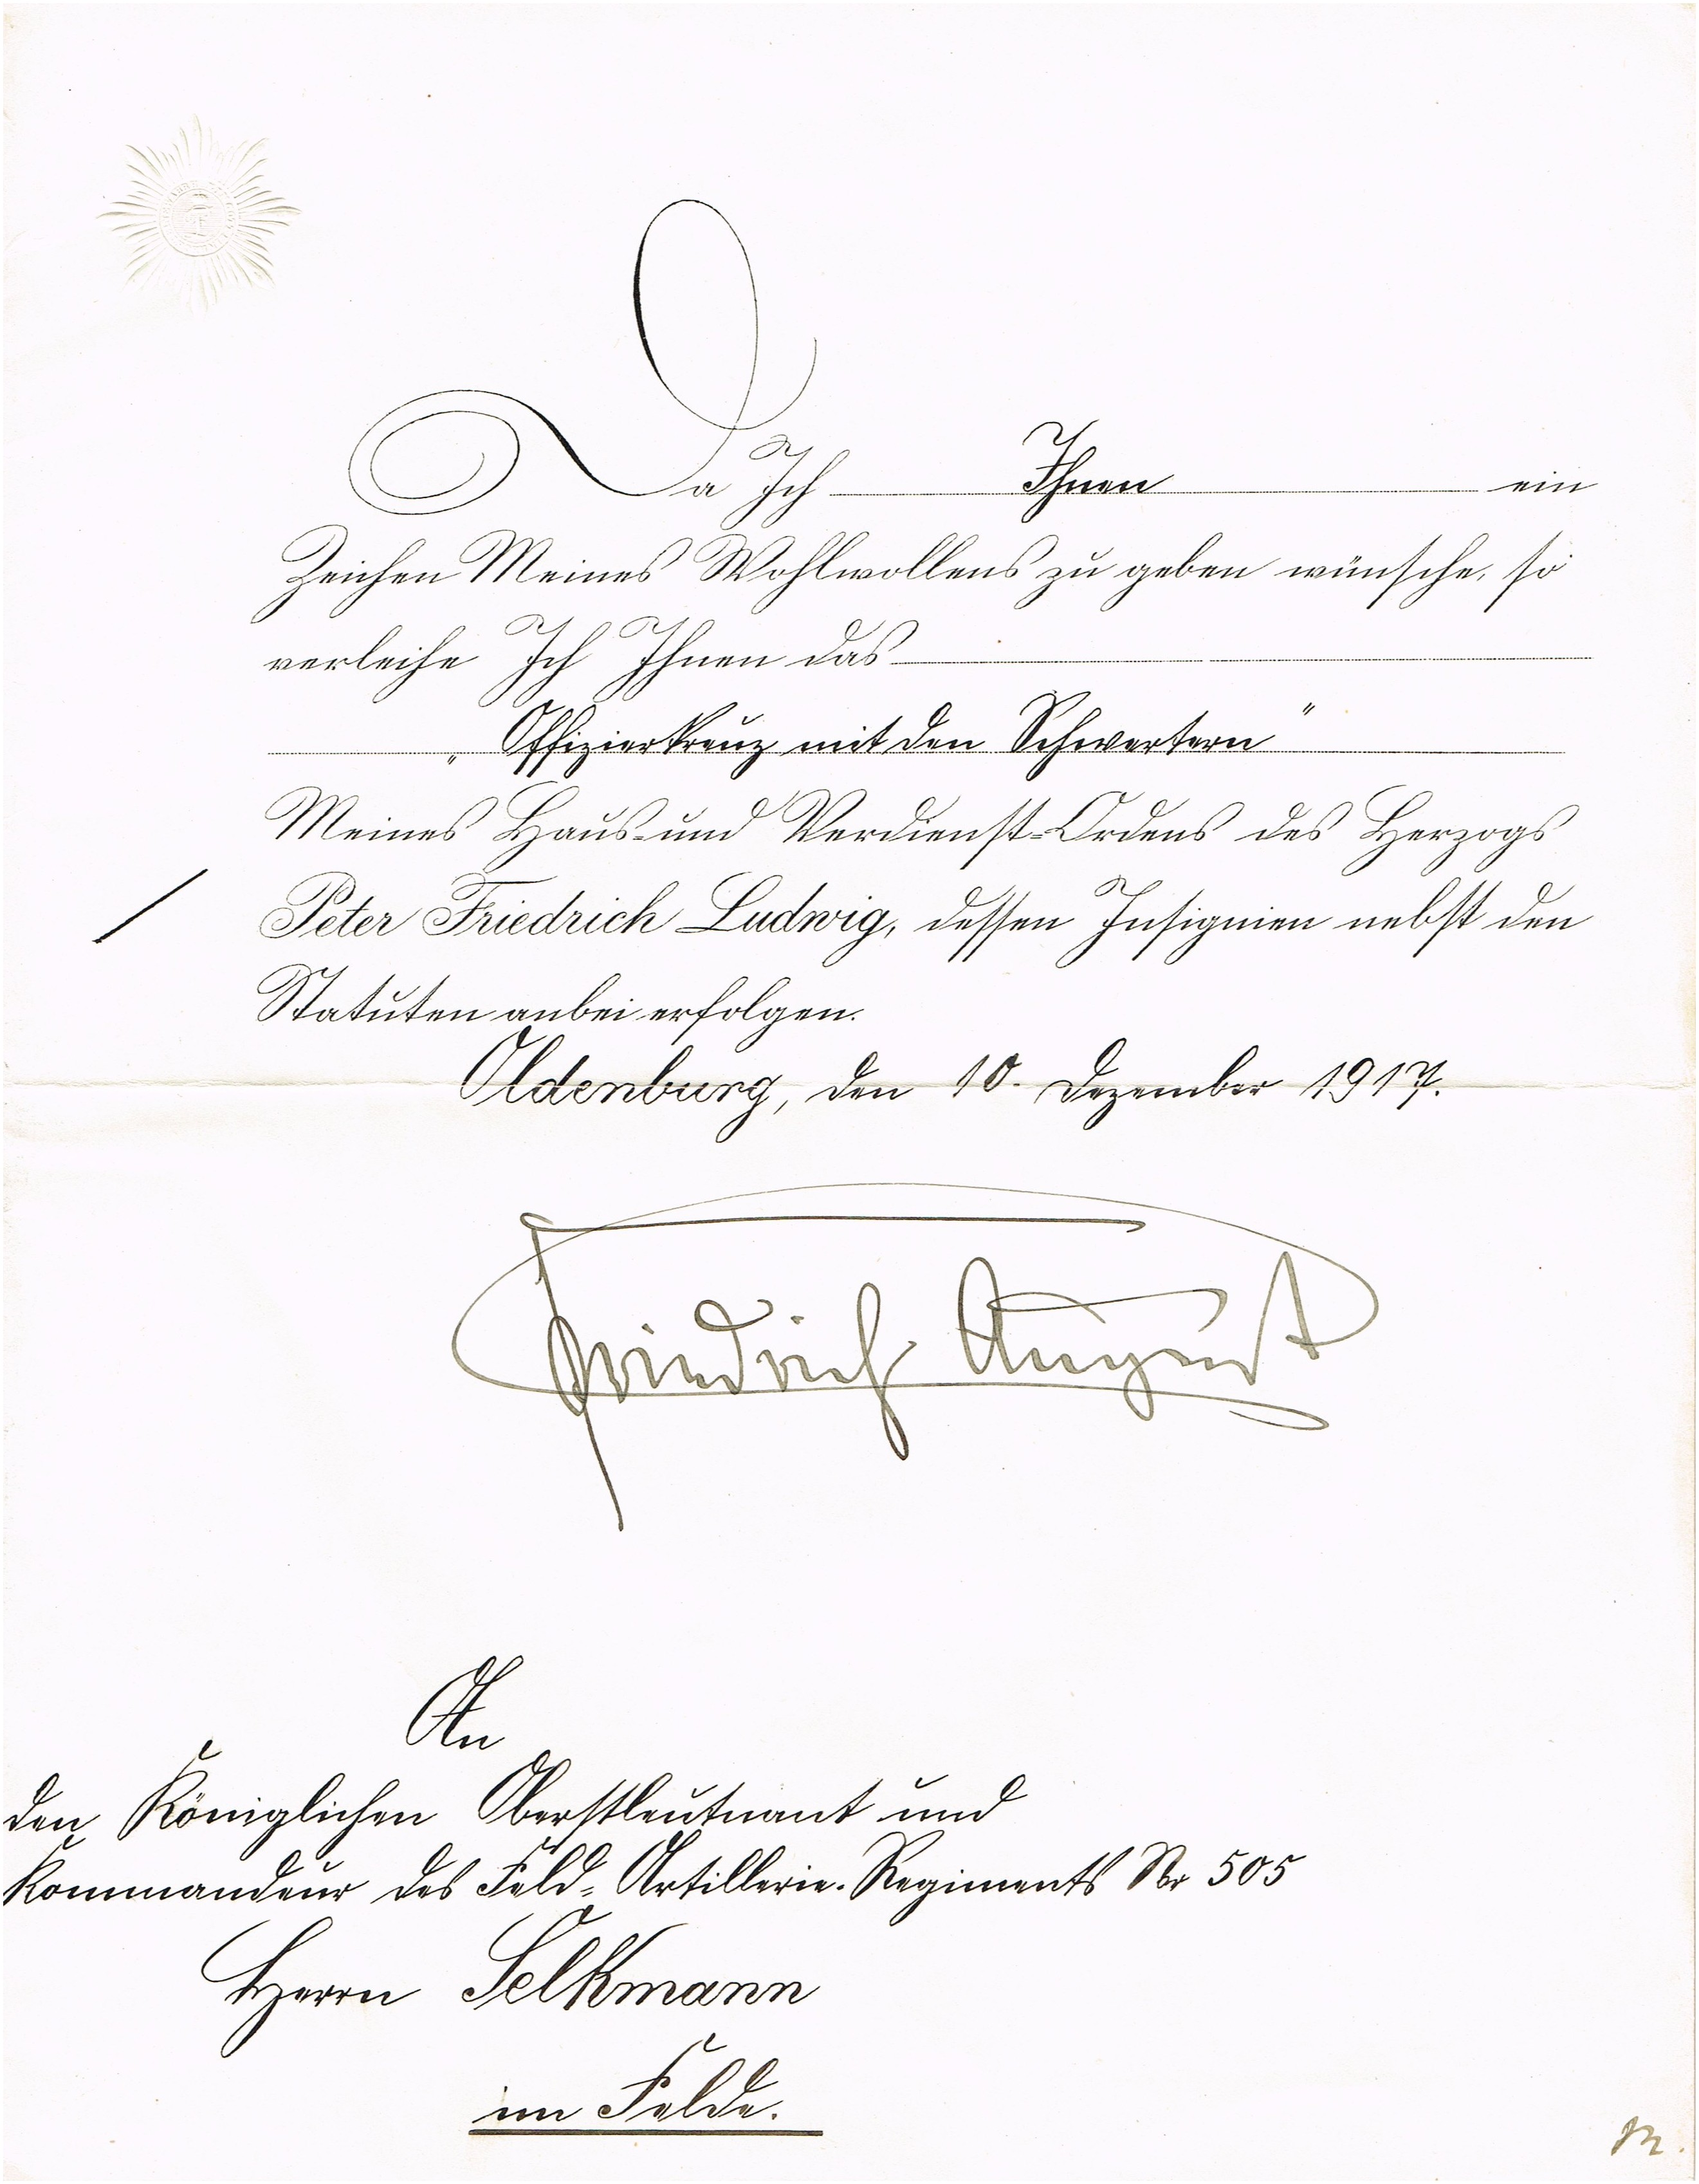 Da Ich Ihnen ein
Zeichen Meines Wohlwollens zu geben wünsche, so
verleihe Ich Ihnen das
„Offizierkreuz mit den Schwertern"
Meines Haus- und Verdienst-Ordens des Herzogs
Peter Friedrich Ludwig, dessen Insignien nebst den
Statuten anbei erfolgen.
Oldenburg, den 10. Dezember 1917.
Friedrich August
An
den Königlichen Oberstleutnant und
Kommandeur des Feld-Artillerie-Regiments Nr 505
Herrn Selkmann
im Felde.